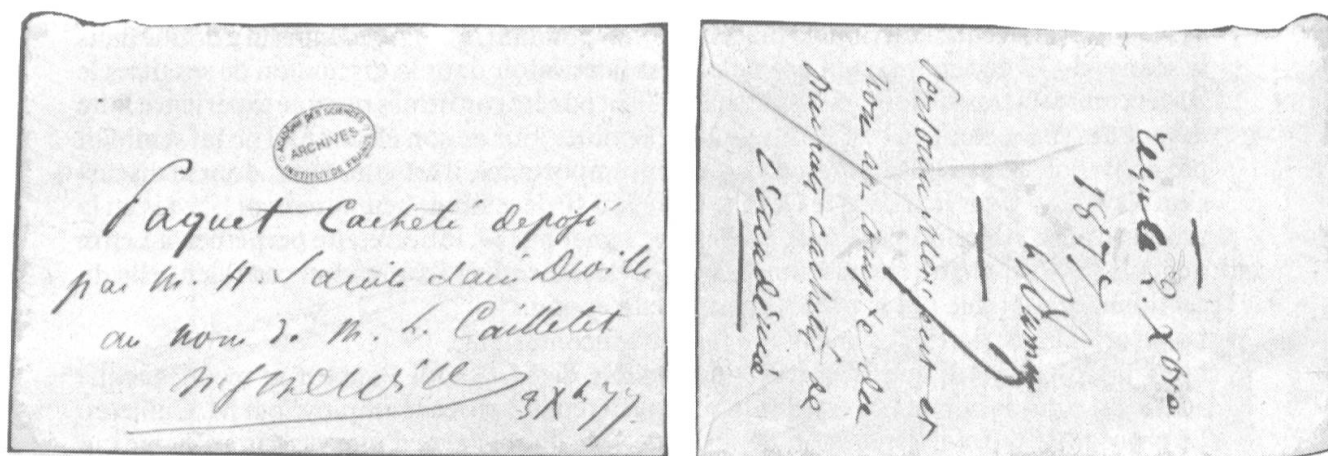 ACADÉMIE DES SCIENCES
ARCHIVES
INSTITUT DE FRANCE
Paquet Cacheté deposé
par M. H. Sainte Claire Deville
au nom de M. L. Cailletet
3 Xb 77.
Reçu le 3 Xbre
1877
personnellement et
non au compte des
paquets cachetés de
L'académie